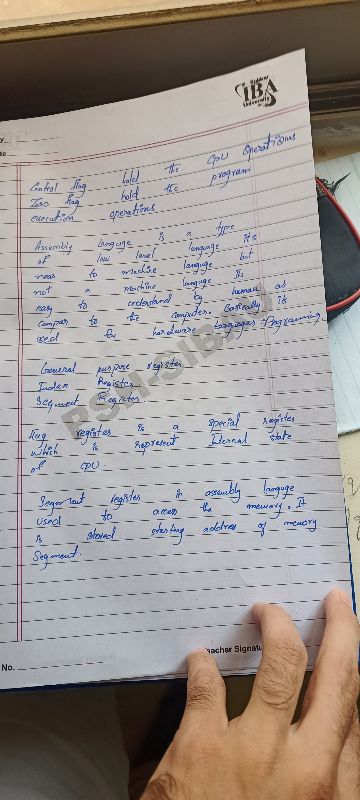 Sukkur
IBA
University
Control flag hold the CPU operations
Zero flag hold the program
execution operations
Assembly languge is a type
of low level languge its
near to machine languge but
not a machine languge Its
easy to understand by human as
compar to the computer. Basically is
used for hardware languages Programing
General purpose register
Index Register
Segment Register
flag register is a special register
which is represent Internal state
of CPU
Segment register in assembly languge
used to access the memory. It
is stored starting address of memory
Segment.
No.
Teacher Signatu